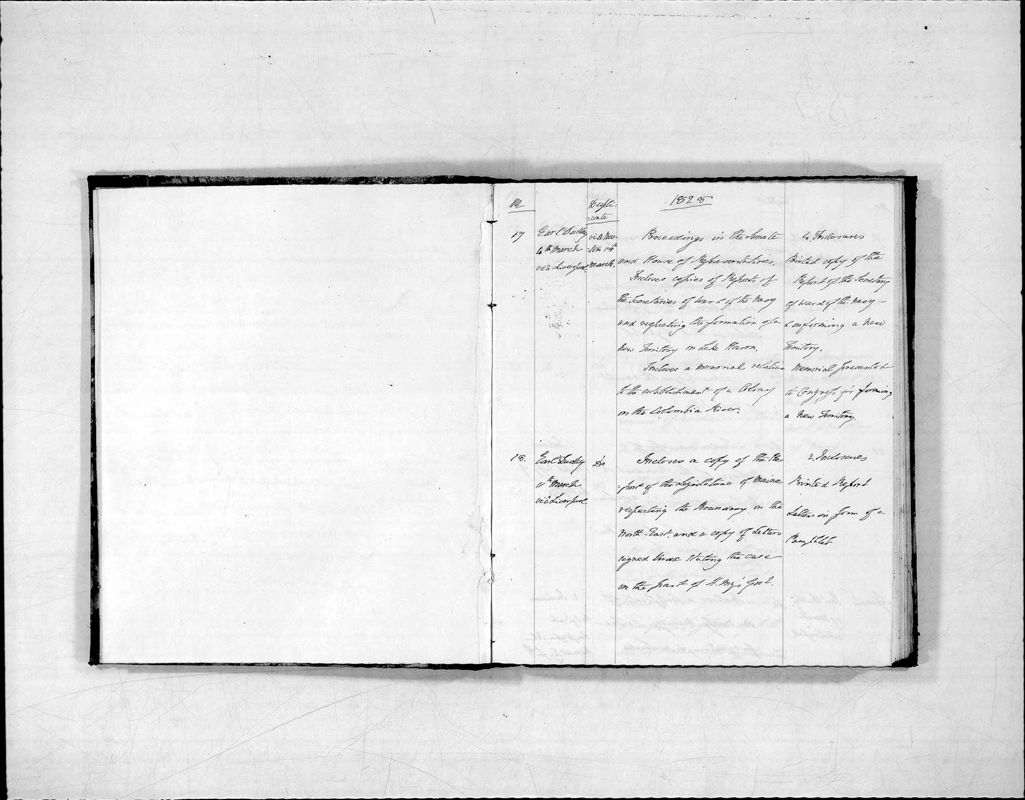 Dupli-
cate
1828
17
Earl Dudley
4th March
via Liverpool
March.
Proceedings in the Senate
and House of Representatives.
Incloses copies of Reports of
the Secretaries of War & of the Navy
and respecting the formation of a
New Territory on Lake Huron
Incloses a memorial relative
to the establishment of a Colony
on the Columbia River.
4 Inclosures
Printed copy of the
Report of the Secretary
of War & of the Navy -
& on forming a New
Territory.
Memorial presented
to Congress for forming
a New Territory
18.
Earl Dudley
11th March
via Liverpool
Do
Incloses a copy of the Re-
-port of the Legislature of Maine
respecting the Boundary on the
North-East and a copy of Letters
signed Verax stating the case
on the part of H. My's Govt.
2 Inclosures
Printed Report
Letters in form of a
Pamphlet